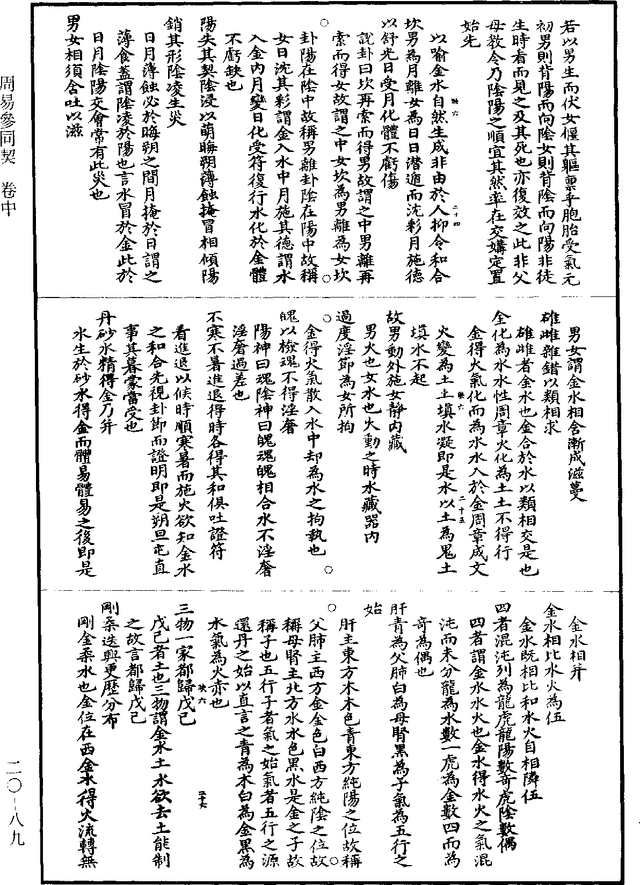 周易參同契　卷中
若以男生而伏女偃其軀稟乎胞胎受氣元
初男則背陽而向陰女則背陰而向陽非徒
生時看而見之及其死也亦復效之此非父
母教令乃陰陽之順宜其然率在交媾定置
始先
以喻金水自然生成非由於人抑令和合
坎男為月離女為日日潛適而沈彩月施德
以舒光日受月化體不虧傷
說卦曰坎再索而得男故謂之中男離再
索而得女故謂之中女坎為男離為女坎
卦陽在陰中故稱男離卦陰在陽中故稱
女日沈其彩謂金入水中月施其德謂水
入金內月變日化受符復行水化於金體
不虧缺也
陽失其契陰浸以萌晦朔薄蝕掩冒相傾陽
銷其形陰凌生災
日月薄蝕必於晦朔之間月掩於日謂之
薄食蓋謂陰凌於陽也言水冒於金此於
日月陰陽交會常有此災也
男女相須含吐以滋
男女謂金水相合漸成滋蔓人
雄雌雜錯以類相求
雄雌者金水也金合於水以類相交是也
金化為水水性周章火化為土土不得行
金得火氣化而為水水入於金周章成文
火變為土土填水凝即是水以土為鬼土
填水不起
故男動外施女靜內藏
男火也女水也火動之時水藏器內
過度淫節為女所拘
金得火氣散入水中却為水之拘執也
魄以檢魂不得淫奢
陽神曰魂陰神曰魄魂魄相合水不淫奢
淫奢過差也
不寒不暑進退得時各得其和俱吐證符
看進退以候時順寒暑而施火欲知金水
之和合先視卦節而證明即是朔旦屯直
事其暮蒙當受也
丹砂水精得金乃并
水生於砂水得金而體易體易之後即是
金水相并
金水相比水火為伍
金水既相比和水火自相隣伍
四者混沌列為龍虎龍陽數奇虎陰數偶
四者謂金水水火也金水得水火之氣混
沌而未分龍為水數一虎為金數四而為
奇為偶也
肝青為父肺白為母腎黑為子氣為五行之
始
肝主東方木木色青東方純陽之位故稱
父肺主西方金金色白西方純陰之位故
稱母腎主北方水水色黑水是金之子故
稱子也五行子者氣之始氣者五行之源
還丹之始以真言之青為木白為金黑為
水氣為火亦也
三物一家都歸戊己
戊己者土也三物謂金水土水欲去土能制
之故言都歸戊己
剛柔迭興更歷分布
剛金柔水也金位在西金水得火流轉無
二〇－八九